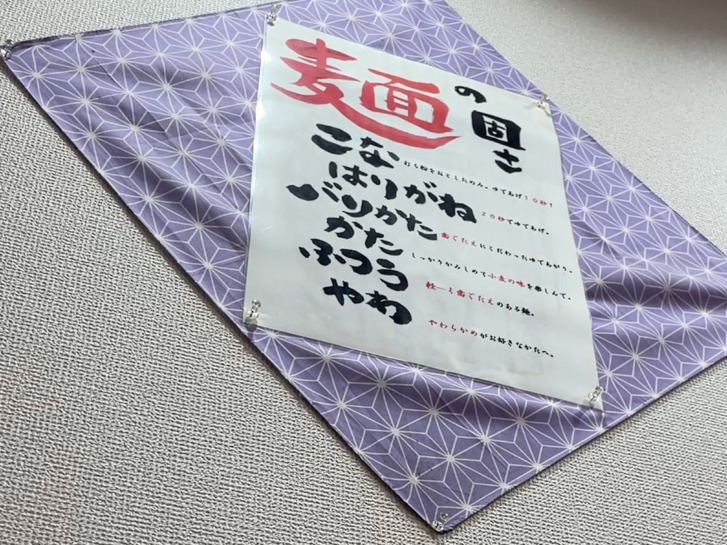 麺の固さ
こな 打ち粉をおとしたのみ。ゆであげ10秒!
はりがね 20秒でゆであげ。
バリかた 歯ごたえにこだわったゆであがり。
かた しっかりかみしめて小麦の味を楽しんで。
ふつう 軽〜い歯ごたえのある麺。
やわ やわらかめがお好きなかたへ。